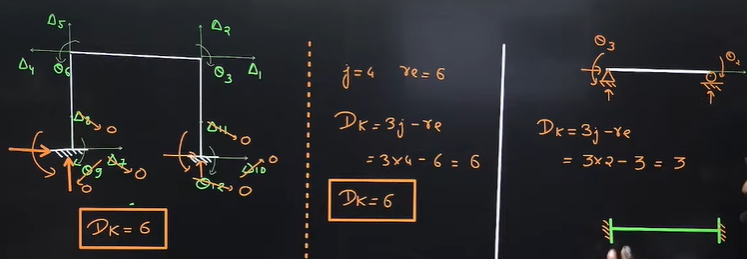 Δ5
Δ2
Δ4
θ6
θ3
Δ1
Δ8
0
Δ11
0
θ9
Δ7
0
0
θ12
0
Δ10
0
DK = 6
j=4 re = 6
DK = 3j-re
= 3×4 - 6 = 6
DK = 6
θ3
DK = 3j-re
= 3×2 - 3 = 3